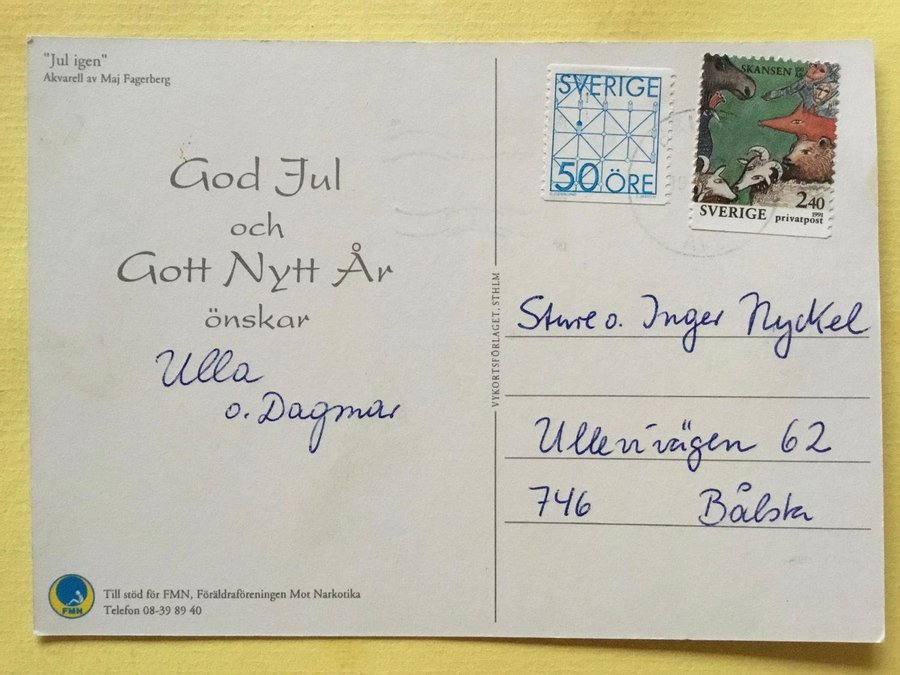 "Jul igen"
Akvarell av Maj Fagerberg
God Jul
och
Gott Nytt År
önskar
Ulla
o. Dagmar
FMN
Till stöd för FMN, Föräldraföreningen Mot Narkotika
Telefon 08-39 89 40
VYKORTSFÖRLAGET, STHLM
SVERIGE
50 ÖRE
SKANSEN
SVERIGE
2.40
1991
privatpost
Sture o. Inger Nyckel
Ullevivägen 62
746 Bålsta